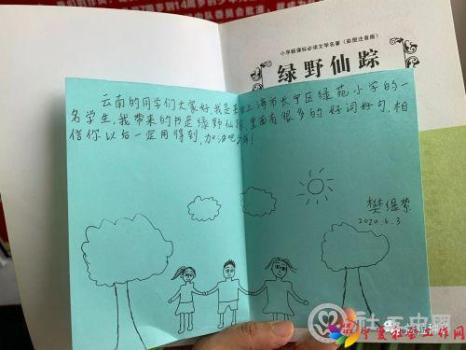 小学新课标必读文学名著(彩图注音版)
绿野仙踪
云南的同学们大家好,我是来自上海市长宁区绿苑小学的一
名学生,我带来的书是绿野仙踪,里面有很多的好词好句,相
信你以后一定用得到,加油吧
2020.6.3
社工中国
宁夏社会工作网